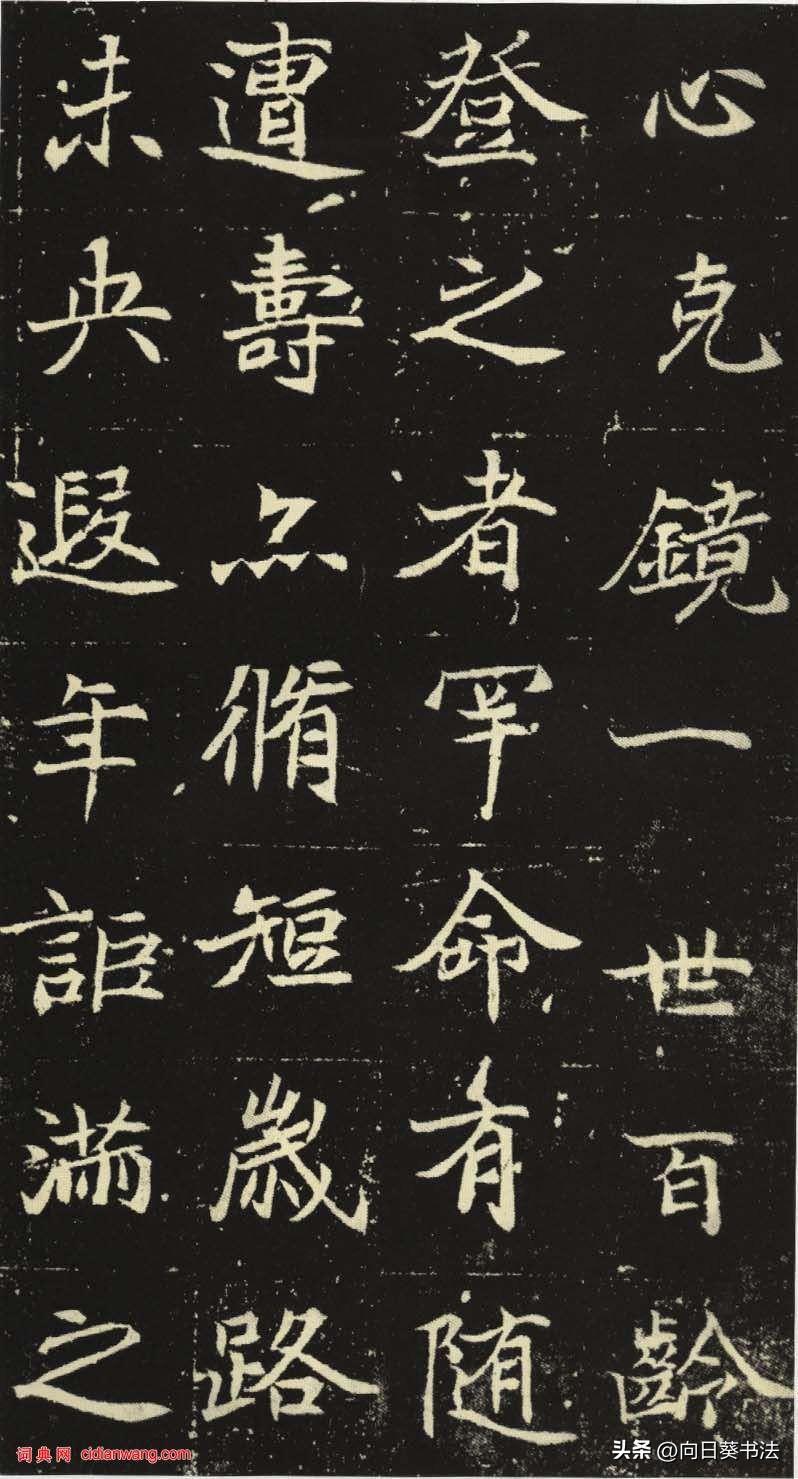 心克鏡一世百齡
登之者罕命有随
遭壽亦脩短歲路
未央遐年詎滿之
词典网 cidianwang.com
头条 @向日葵书法